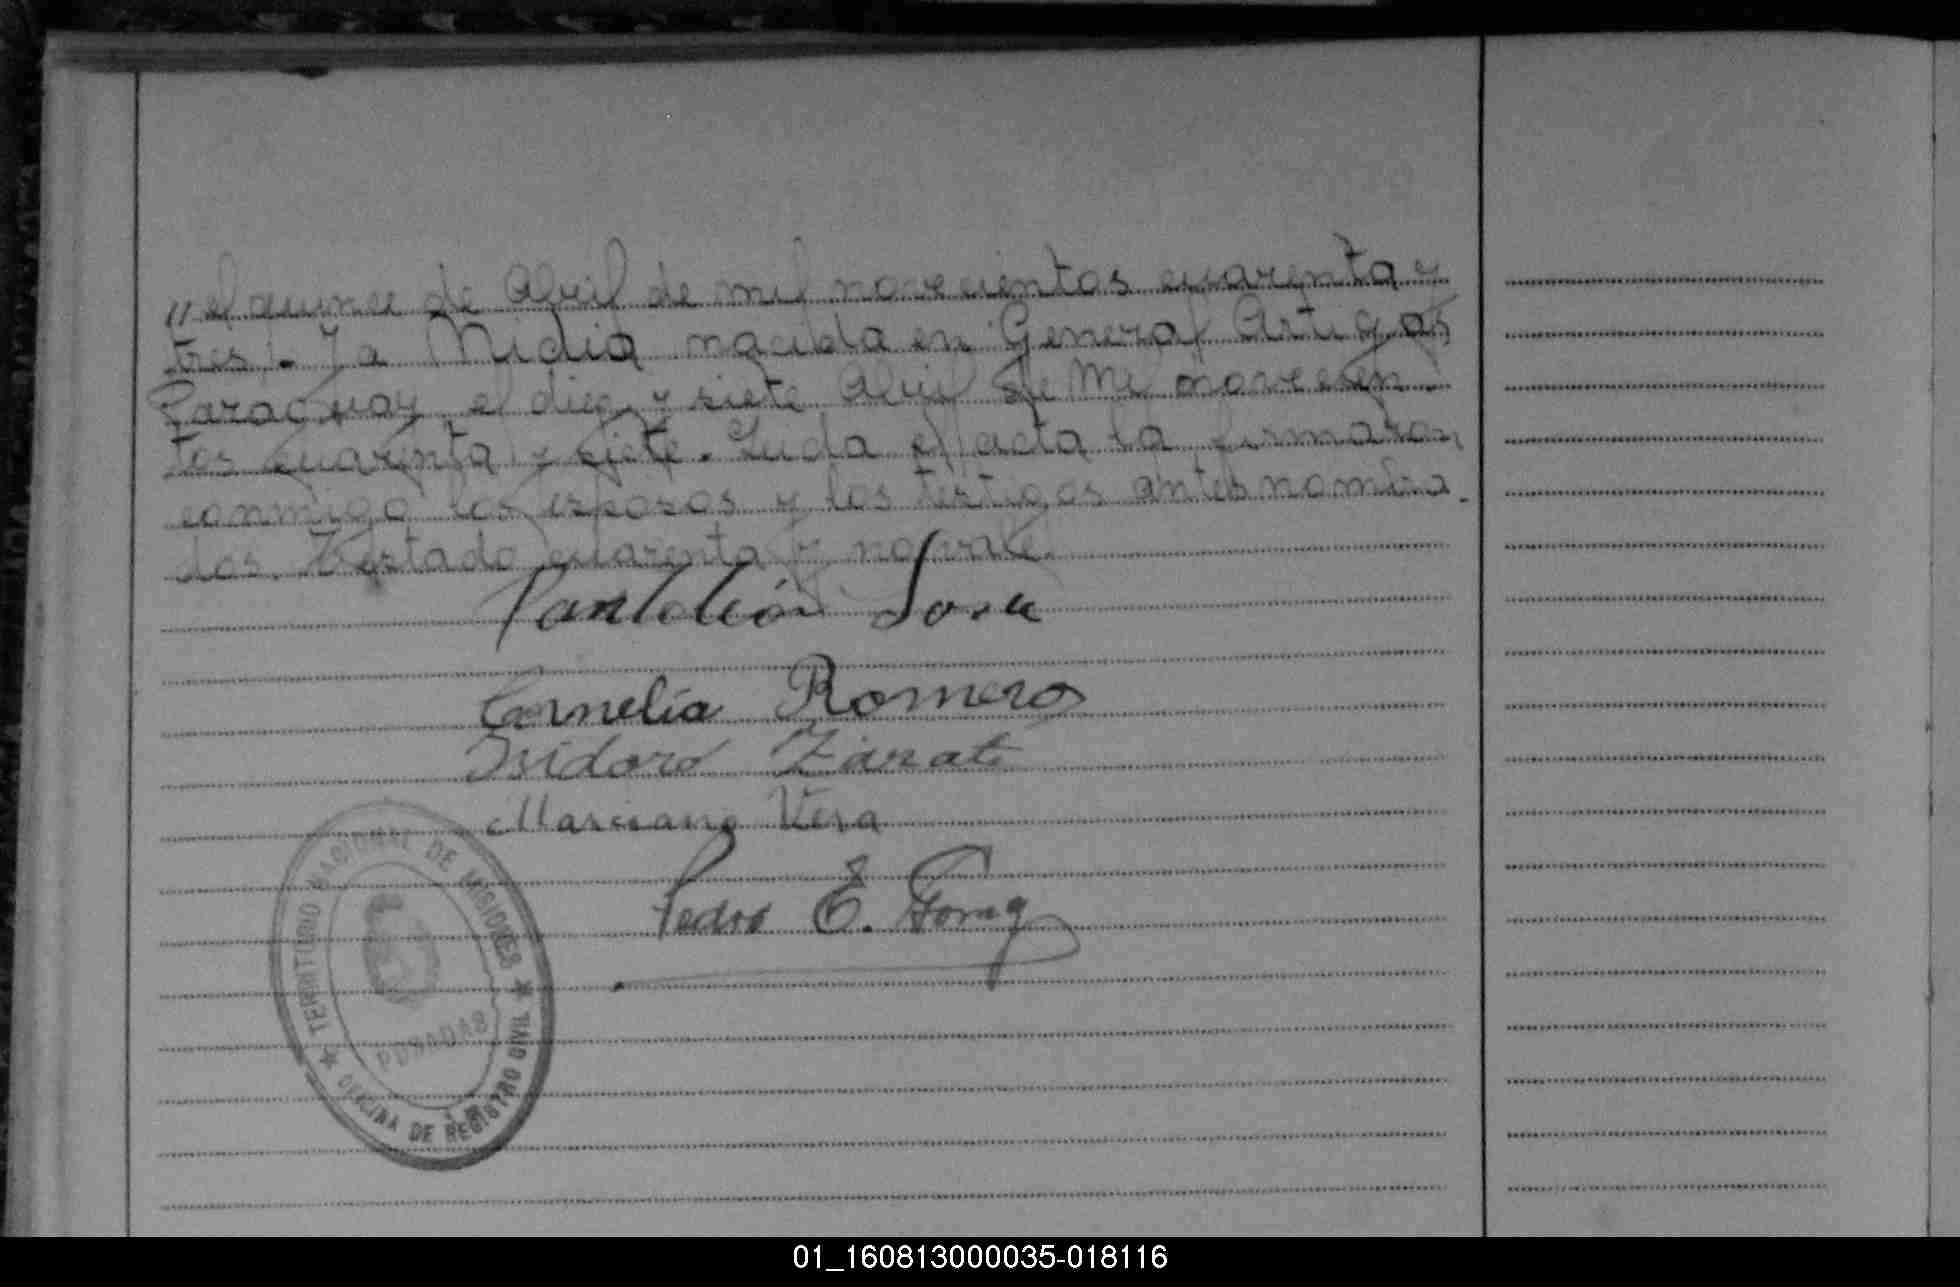 "el quince de Abril de mil novecientos cuarenta y
tres. - Ya Nidia nacida en General Artigas
Paraguay el diez y siete Abril de Mil novecien
tos cuarenta y siete. Leida el acta la firmaron
conmigo los esposos y los testigos antes nombra-
dos. Testado cuarenta y no vale
Pantaleón Sosa
Cornelia Romero
Isidoro Zárate
Marciano Vera
Pedro E.
TERRITORIO NACIONAL DE MISIONES
POSADAS
OFICINA DE REGISTRO CIVIL
01_160813000035-018116